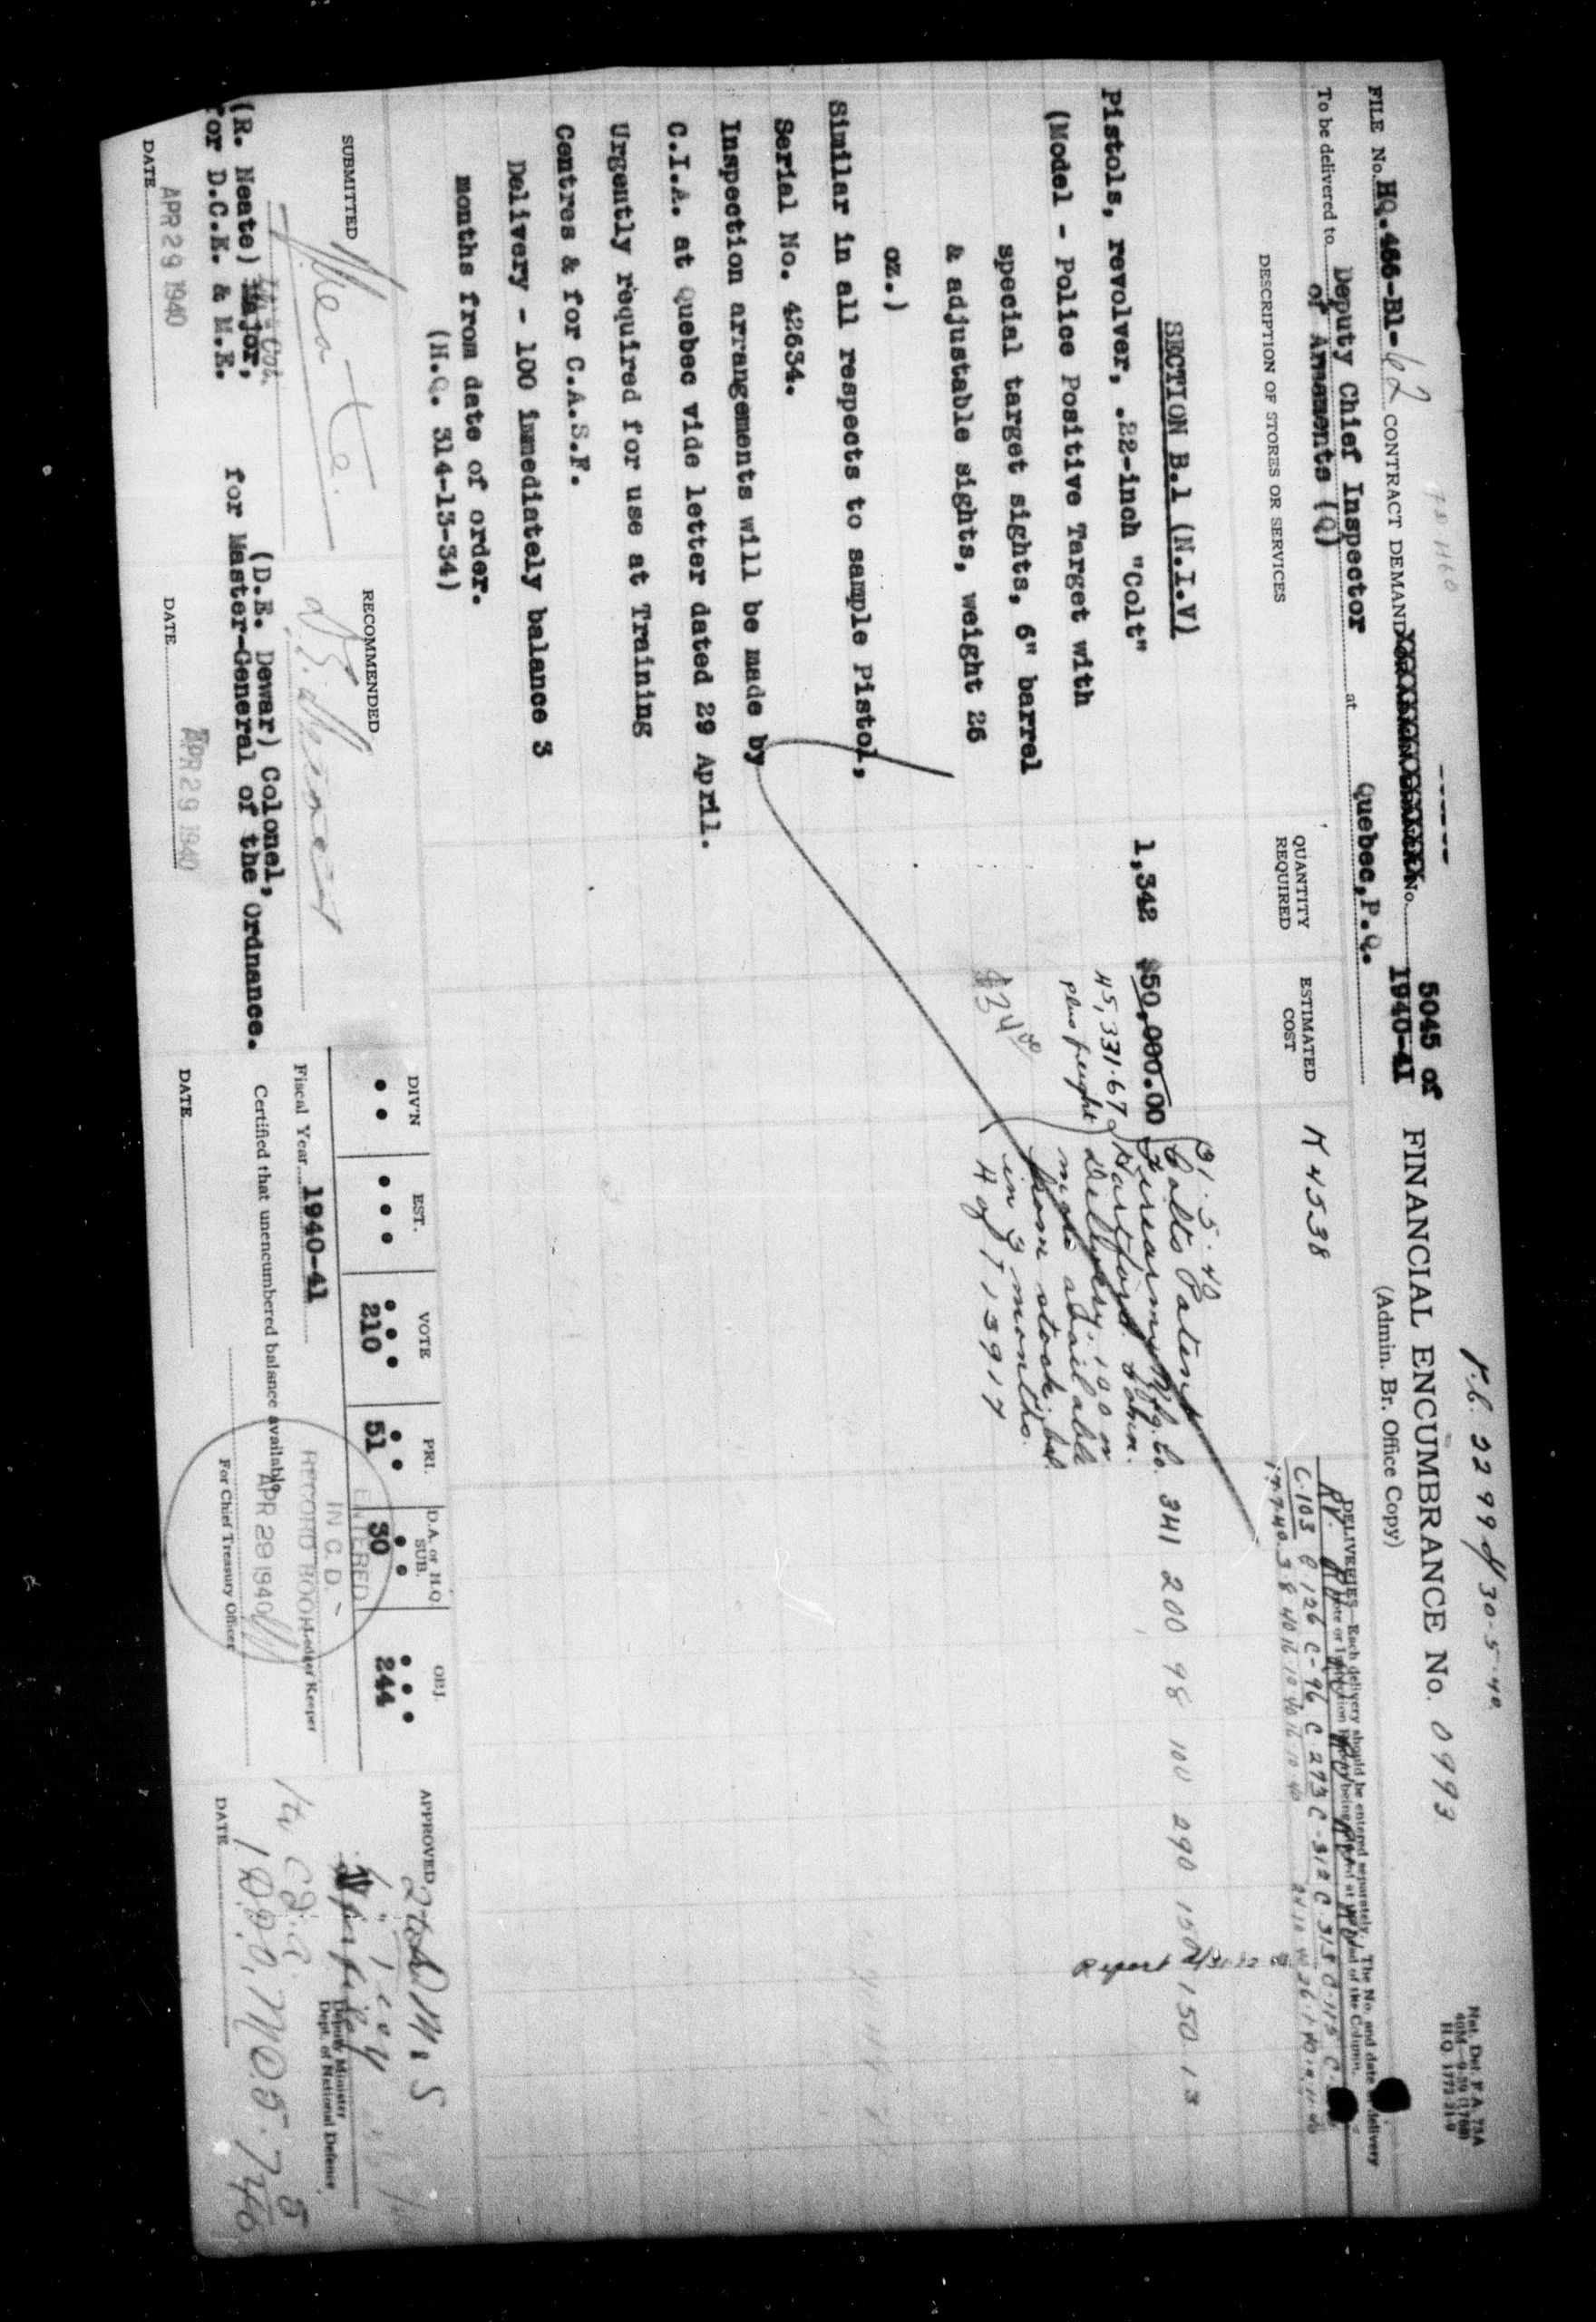 P.C. 2299 d/ 30-5-40.
Nat. Def. F.A. 73A
40M—9-39 (1768)
H.Q. 1772-21-9
5045 of
FILE No. HQ.466-B1-62 CONTRACT DEMAND No. 1940-41
FINANCIAL ENCUMBRANCE No. 0993
(Admin. Br. Office Copy)
To be delivered to Deputy Chief Inspector at Quebec, P.Q.
of Armaments (Q)
K 4538
DELIVERIES—Each delivery should be entered separately. The No. and date of delivery
DESCRIPTION OF STORES OR SERVICES
QUANTITY REQUIRED
ESTIMATED COST
C.103 C.126 C-96 C 273 C-312 C 313
17.7.40 3 8 40 16.10.40 16.10.40
SECTION B.1 (N.I.V)
Pistols, revolver, .22-inch "Colt" 1,342 $50,000.00
(Model - Police Positive Target with
special target sights, 6" barrel
& adjustable sights, weight 26
oz.)
45,331.67
plus freight
$34.00
31.5.40
Colts Patent
Firearms Mfg. Co.
Hartford. Conn.
Delivery. 100 
available
from stock, bal.
in 3 months.
A of T 13917
341 200 98 100 290 150 150 13
Report
Similar in all respects to sample Pistol,
Serial No. 42634.
Inspection arrangements will be made by
C.I.A. at Quebec vide letter dated 29 April.
Urgently required for use at Training
Centres & for C.A.S.F.
Delivery - 100 immediately balance 3
months from date of order.
(H.Q. 314-13-34)
SUBMITTED
(R. Neate) Major,
Lt. Col.
for D.C.E. & M.E.
DATE APR 29 1940
RECOMMENDED
(D.E. Dewar) Colonel,
for Master-General of the Ordnance.
DATE APR 29 1940
DIV'N EST. VOTE PRI. D.A. or H.Q. SUB. OBJ.
210 51 30 244
Fiscal Year 1940-41
Certified that unencumbered balance available
Ledger Keeper
For Chief Treasury Officer
DATE
ENTERED
IN C.D.
RECORD BOOK
APR 29 1940
APPROVED
Deputy Minister
Dept. of National Defence
DATE